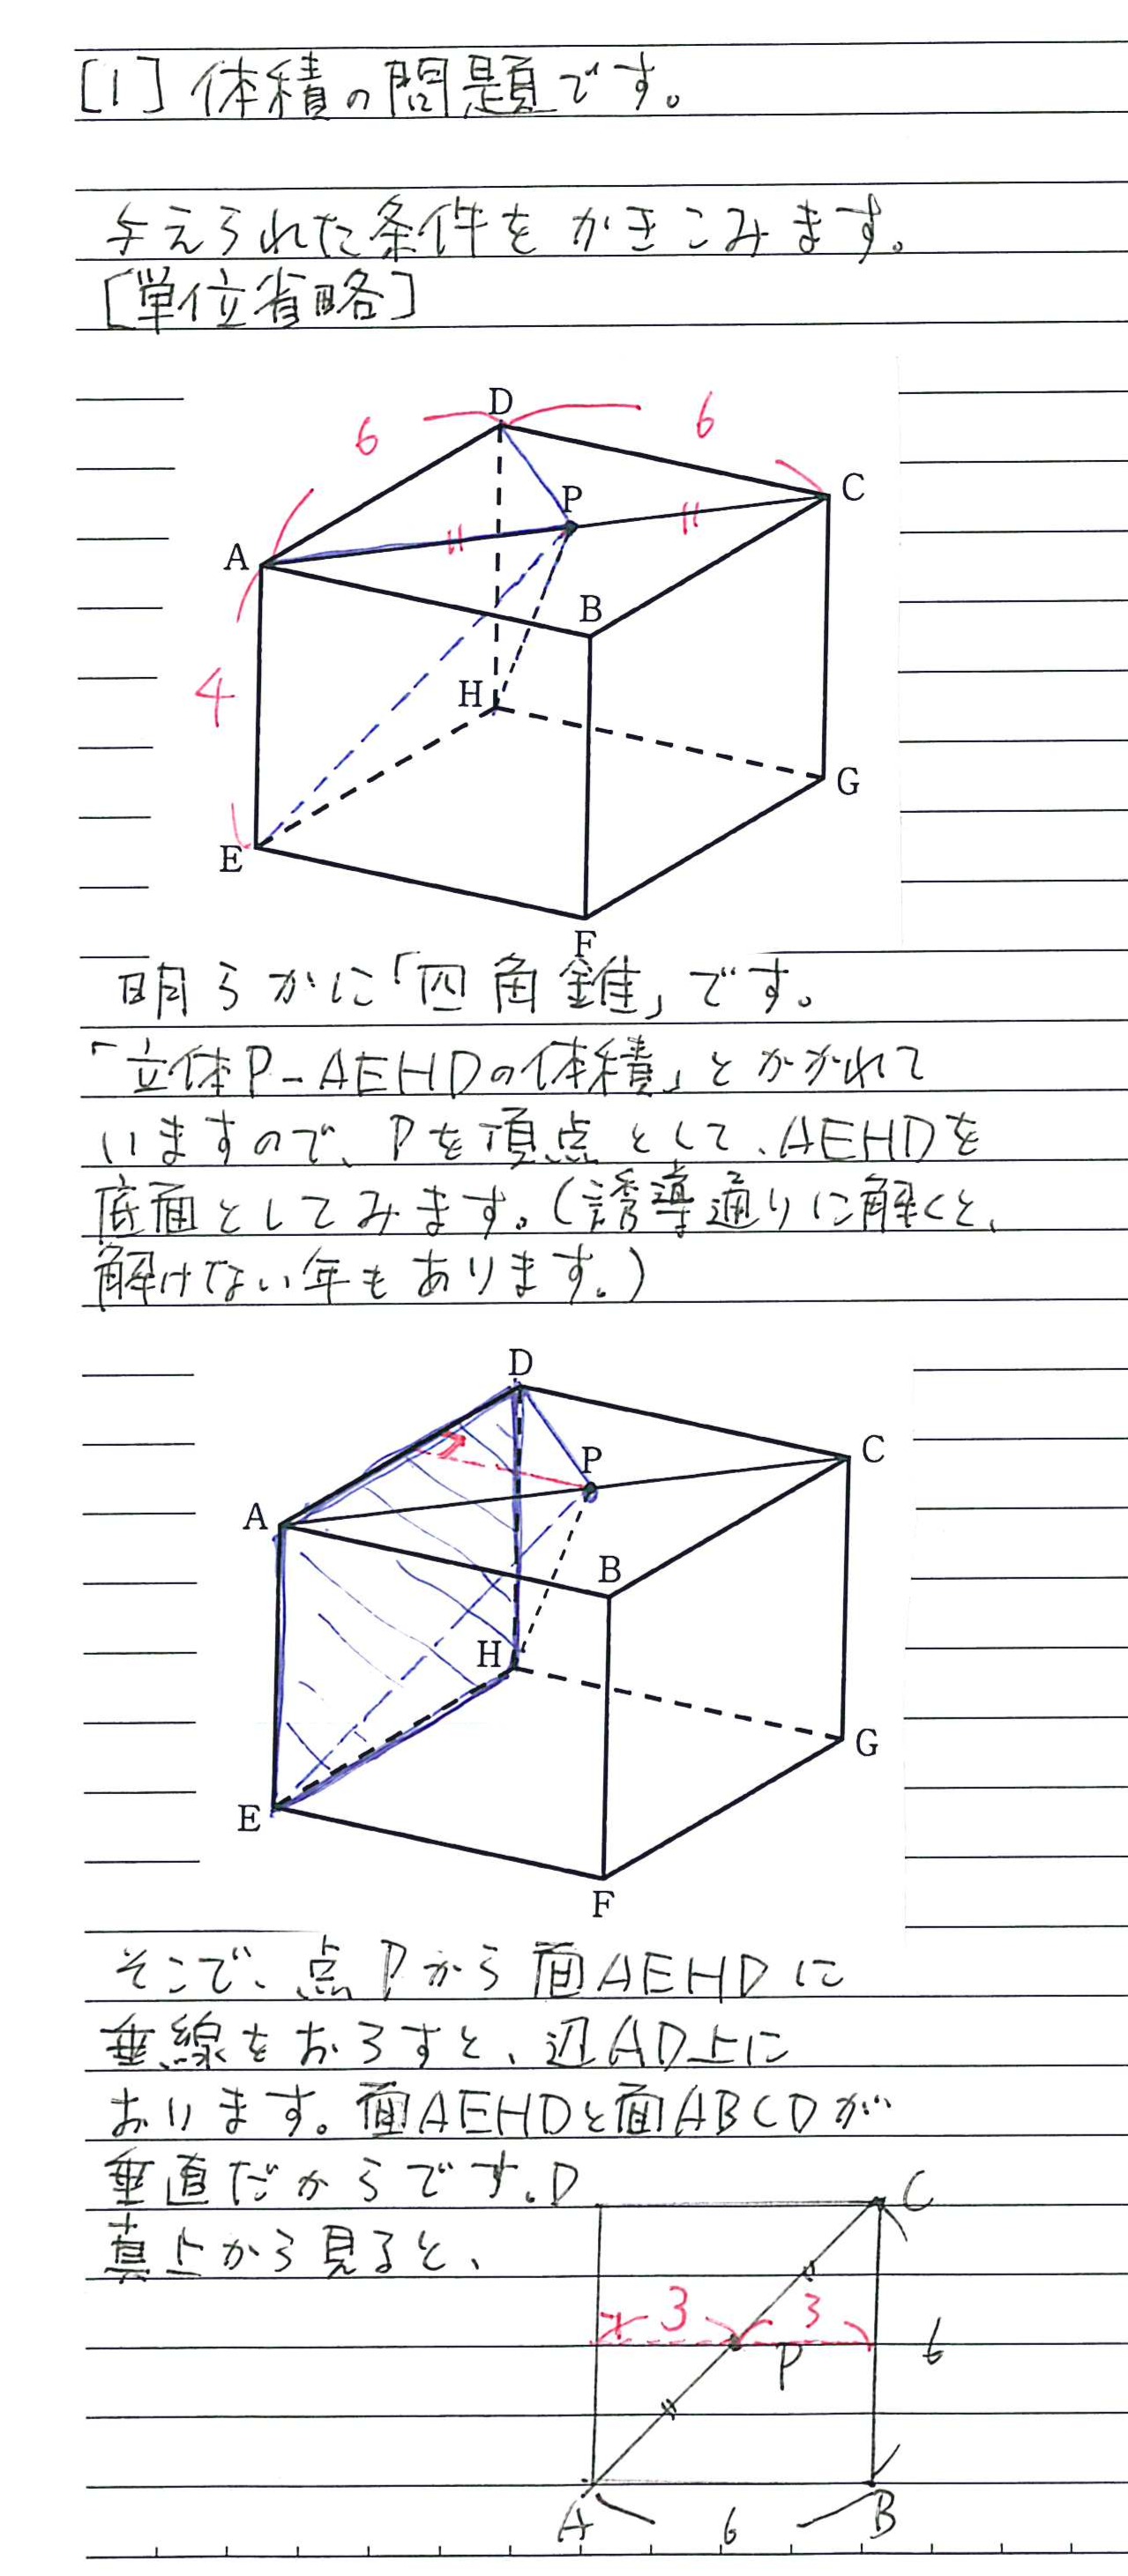 [1] 体積の問題です。
与えられた条件をかきこみます。
[単位省略]
D
6
6
C
P
A
B
4
H
G
E
F
明らかに「四角錐」です。
「立体P-AEHDの体積」とかかれて
いますので、Pを頂点として、AEHDを
底面としてみます。(誘導通りに解くと、
解けない年もあります。)
D
C
P
A
B
H
G
E
F
そこで、点Pから面AEHDに
垂線をおろすと、辺AD上に
おります。面AEHDと面ABCDが
垂直だからです。
真上から見ると、
D
C
3
3
P
6
A
6
B